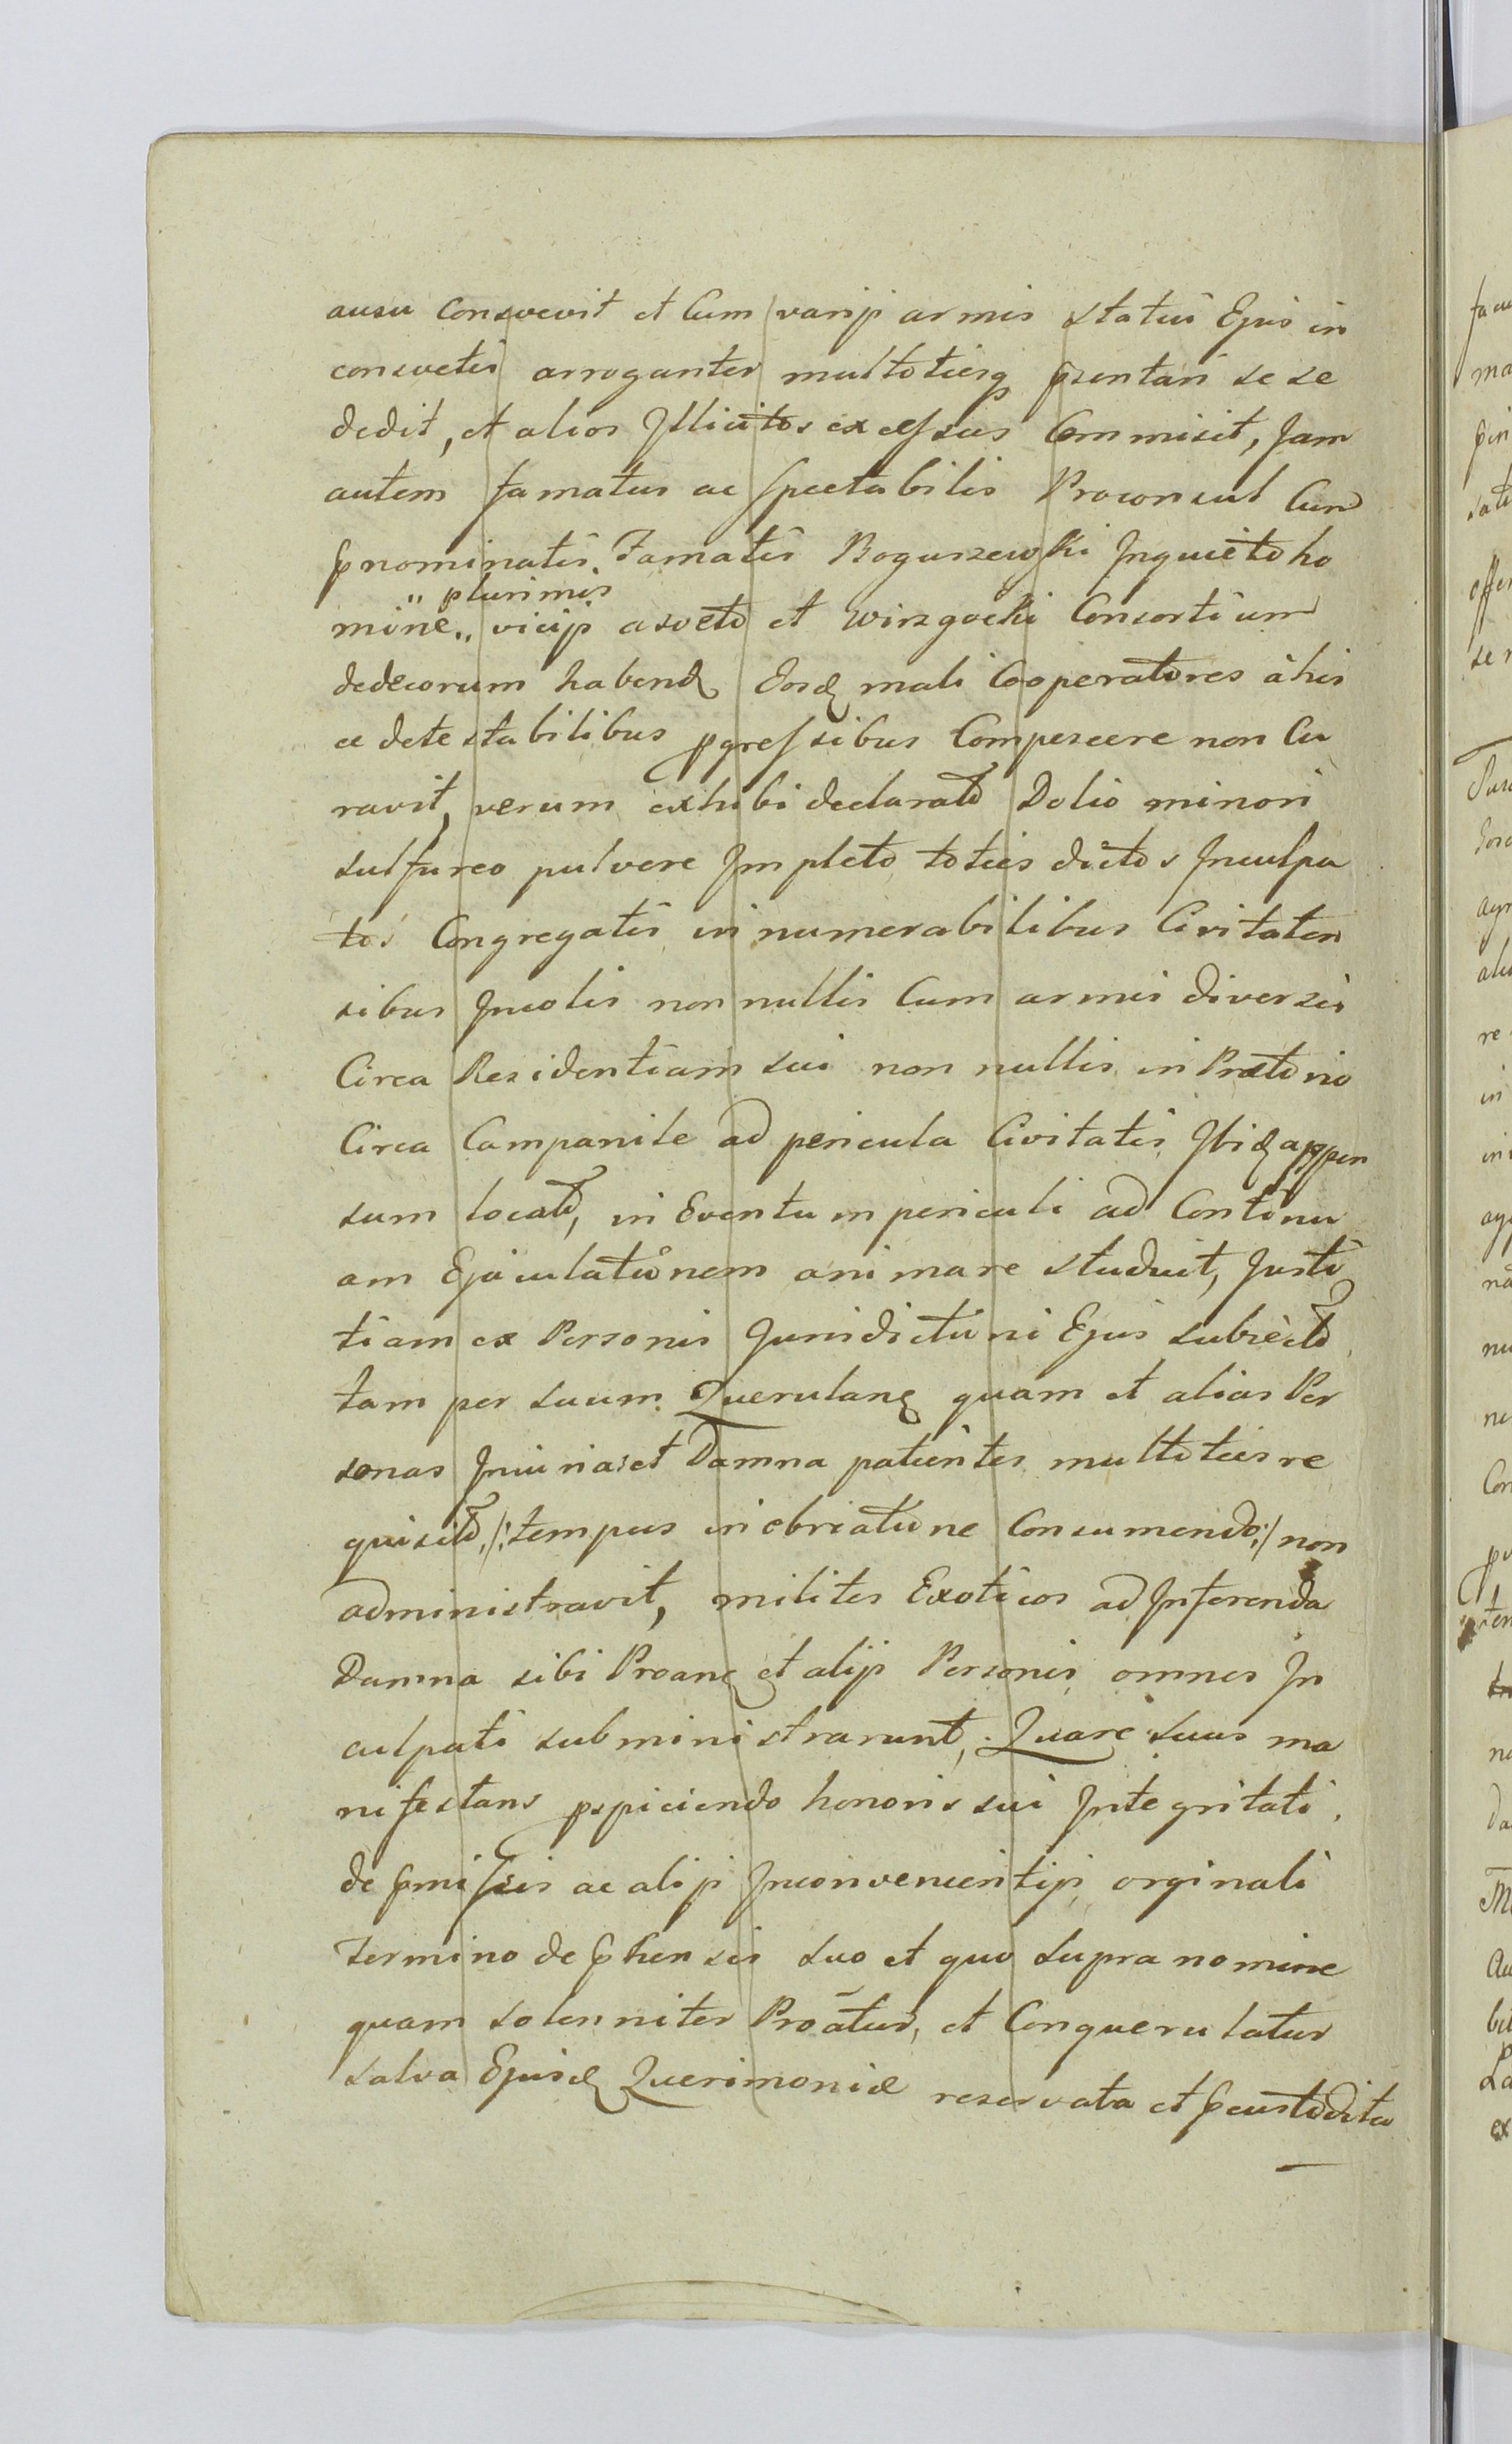 ausu consvevit et Cum varijs armis statui Ejus in
consvetis arroganter multotiesq præsentari se se
dedit, et alios Illicitos excessus Commisit, Jam
autem famatus ac spectabilis Proconsul Cum
prænominatis Famatis Boguszewski Inquieto ho
" plurimis
mine " vicijs asveto et Wirzgocki Consortium
dedecorum habend Eosd mali Cooperatores à his
ce detestabilibus pgressibus Compescere non Cu
ravit, verum exhibi declarato Dolio minori
sulfureo pulvere Impleto toties dictos Inculpa
tos Congregatis in numerabilibus Civitaten
sibus Incolis non nullis Cum armis diversis
Circa Residentiam sui non nullis in Prætorio
Circa Campanile ad pericula Civitatis Ibid appen
sum locato, in Eventum periculi ad Continu
am Ejaculationem animare studuit, Justi
tiam ex Personis Jurisdictioni Ejus subiecto
tam per suum Querulane quam et alias Per
sonas Iniurias et Damna patientes multoties re
quisito, /: tempus in ebriatione Consumendo :/ non
administravit, milites Exoticos ad Inferenda
Damna sibi Proane et alijs Personis omnes In
culpati subministrarunt, Quare suus ma
nifestans pspiciendo honoris sui Integritati,
de præmissis ac alijs Inconvenientijs orginali
termino de præhensis suo et quo supra nomine
quam solenniter Proãtur, et Conquerulatur
salva Ejusd Querimoniæ reservata et præcustodita